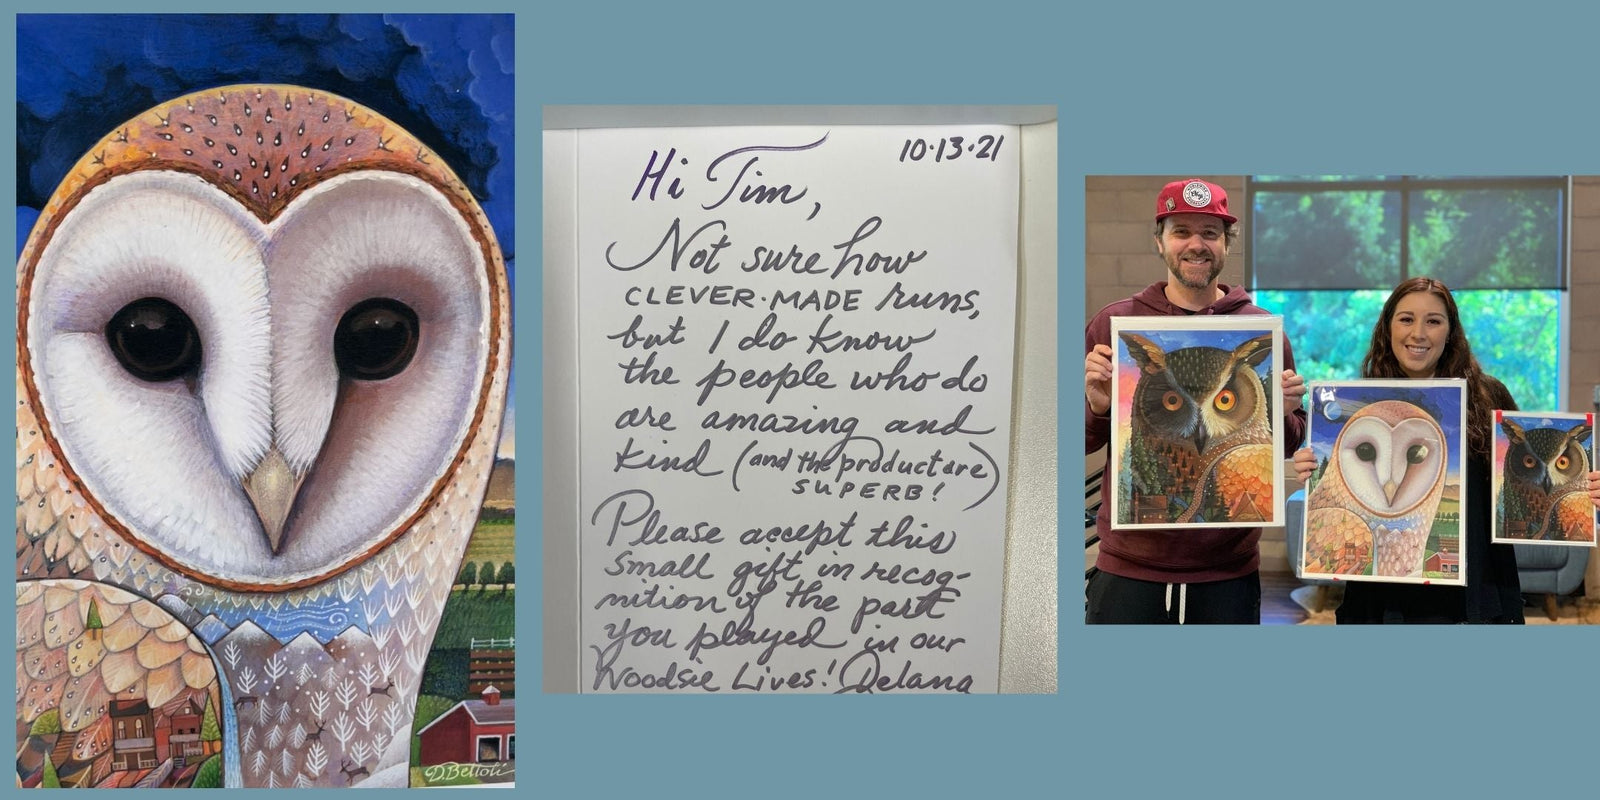 D. Bettoli
10·13·21
Hi Tim,
Not sure how
CLEVER·MADE runs,
but I do know
the people who do
are amazing and
kind (and the product are)
SUPERB!
Please accept this
small gift in recog-
nition of the part
you played in our
Woodsie Lives! Delana